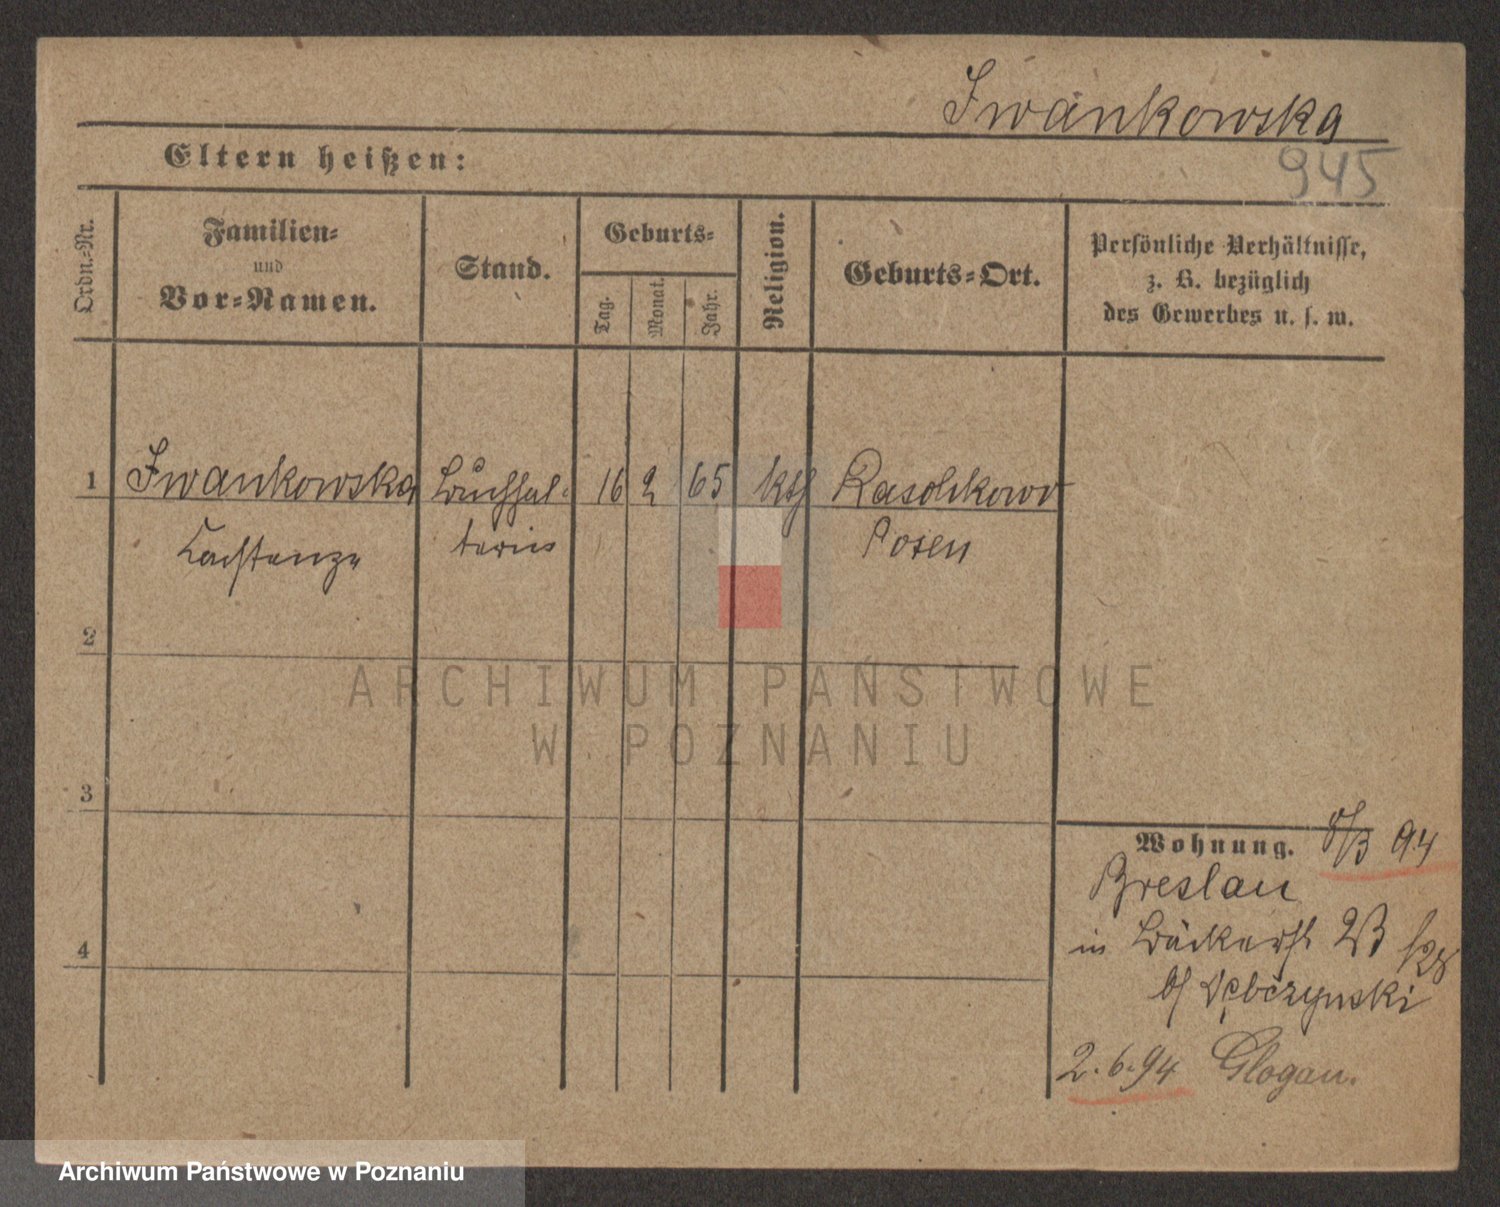 Iwankowska
945
Eltern heißen:
Ordn.-Nr.
Familien-
und
Vor-Namen.
Stand.
Geburts-
Tag.
Monat.
Jahr.
Religion.
Geburts-Ort.
Persönliche Verhältnisse,
z. B. bezüglich
des Gewerbes u. s. w.
1 Iwankowska Buchhal- 16 2 65 kth Raschkow
terin Posen
2
3
4
ARCHIWUM PAŃSTWOWE
W POZNANIU
Wohnung. 8/3 94
Breslau
in Bäckerst 23
b/ Dębczynski
2.6.94 Glogau.
Archiwum Państwowe w Poznaniu